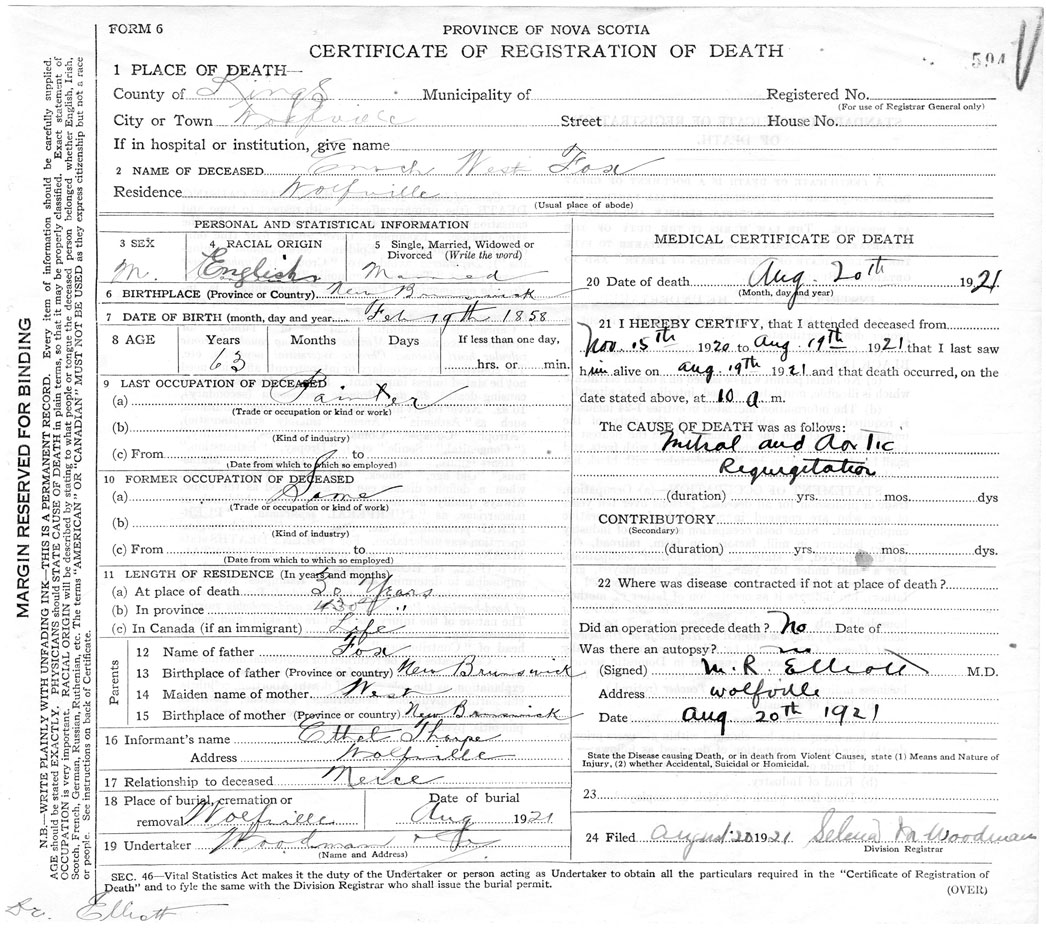 FORM 6
PROVINCE OF NOVA SCOTIA
CERTIFICATE OF REGISTRATION OF DEATH
594
1 PLACE OF DEATH—
County of Kings Municipality of Registered No.
(For use of Registrar General only)
City or Town Wolfville Street House No.
If in hospital or institution, give name
2 NAME OF DECEASED Enoch West Fox
Residence Wolfville
(Usual place of abode)
PERSONAL AND STATISTICAL INFORMATION
3 SEX 4 RACIAL ORIGIN 5 Single, Married, Widowed or
Divorced (Write the word)
M. English Married
6 BIRTHPLACE (Province or Country) New Brunswick
7 DATE OF BIRTH (month, day and year) Feb 19th 1858
8 AGE Years Months Days If less than one day,
63 hrs. or min.
9 LAST OCCUPATION OF DECEASED
(a) Painter
(Trade or occupation or kind or work)
(b)
(Kind of industry)
(c) From to
(Date from which to which so employed)
10 FORMER OCCUPATION OF DECEASED
(a) Same
(Trade or occupation or kind of work)
(b)
(Kind of industry)
(c) From to
(Date from which to which so employed)
11 LENGTH OF RESIDENCE (In years and months)
(a) At place of death 30 Years
(b) In province "
(c) In Canada (if an immigrant) Life
Parents
12 Name of father Fox
13 Birthplace of father (Province or country) New Brunswick
14 Maiden name of mother West
15 Birthplace of mother (Province or country) New Brunswick
16 Informant's name Ethel Tharpe
Address Wolfville
17 Relationship to deceased Neice
18 Place of burial, cremation or Date of burial
removal Wolfville Aug 1921
19 Undertaker Woodman
(Name and Address)
MEDICAL CERTIFICATE OF DEATH
20 Date of death Aug. 20th 1921
(Month, day and year)
21 I HEREBY CERTIFY, that I attended deceased from
Nov. 15th 1920 to Aug 19th 1921 that I last saw
him alive on Aug 19th 1921 and that death occurred, on the
date stated above, at 10 a m.
The CAUSE OF DEATH was as follows:
Mitral and Aortic
Regurgitation
(duration) yrs. mos. dys
CONTRIBUTORY
(Secondary)
(duration) yrs. mos. dys.
22 Where was disease contracted if not at place of death?
Did an operation precede death? No Date of
Was there an autopsy? no
(Signed) M. R. Elliott M.D.
Address Wolfville
Date Aug 20th 1921
State the Disease causing Death, or in death from Violent Causes, state (1) Means and Nature of
Injury, (2) whether Accidental, Suicidal or Homicidal.
23
24 Filed August 20 1921 Selena M Woodman
Division Registrar
SEC. 46—Vital Statistics Act makes it the duty of the Undertaker or person acting as Undertaker to obtain all the particulars required in the "Certificate of Registration of
Death" and to fyle the same with the Division Registrar who shall issue the burial permit.
(OVER)
Dr. Elliott
MARGIN RESERVED FOR BINDING
N.B.—WRITE PLAINLY WITH UNFADING INK—THIS IS A PERMANENT RECORD. Every item of information should be carefully supplied.
AGE should be stated EXACTLY. PHYSICIANS should STATE CAUSE OF DEATH in plain terms, so that it may be properly classified. Exact statement of
OCCUPATION is very important. RACIAL ORIGIN will be described by stating to what people or tongue the deceased person belonged whether English, Irish,
Scotch, French, German, Russian, Ruthenian, etc. The terms "AMERICAN" OR "CANADIAN" MUST NOT BE USED as they express citizenship but not a race
or people. See instructions on back of Certificate.